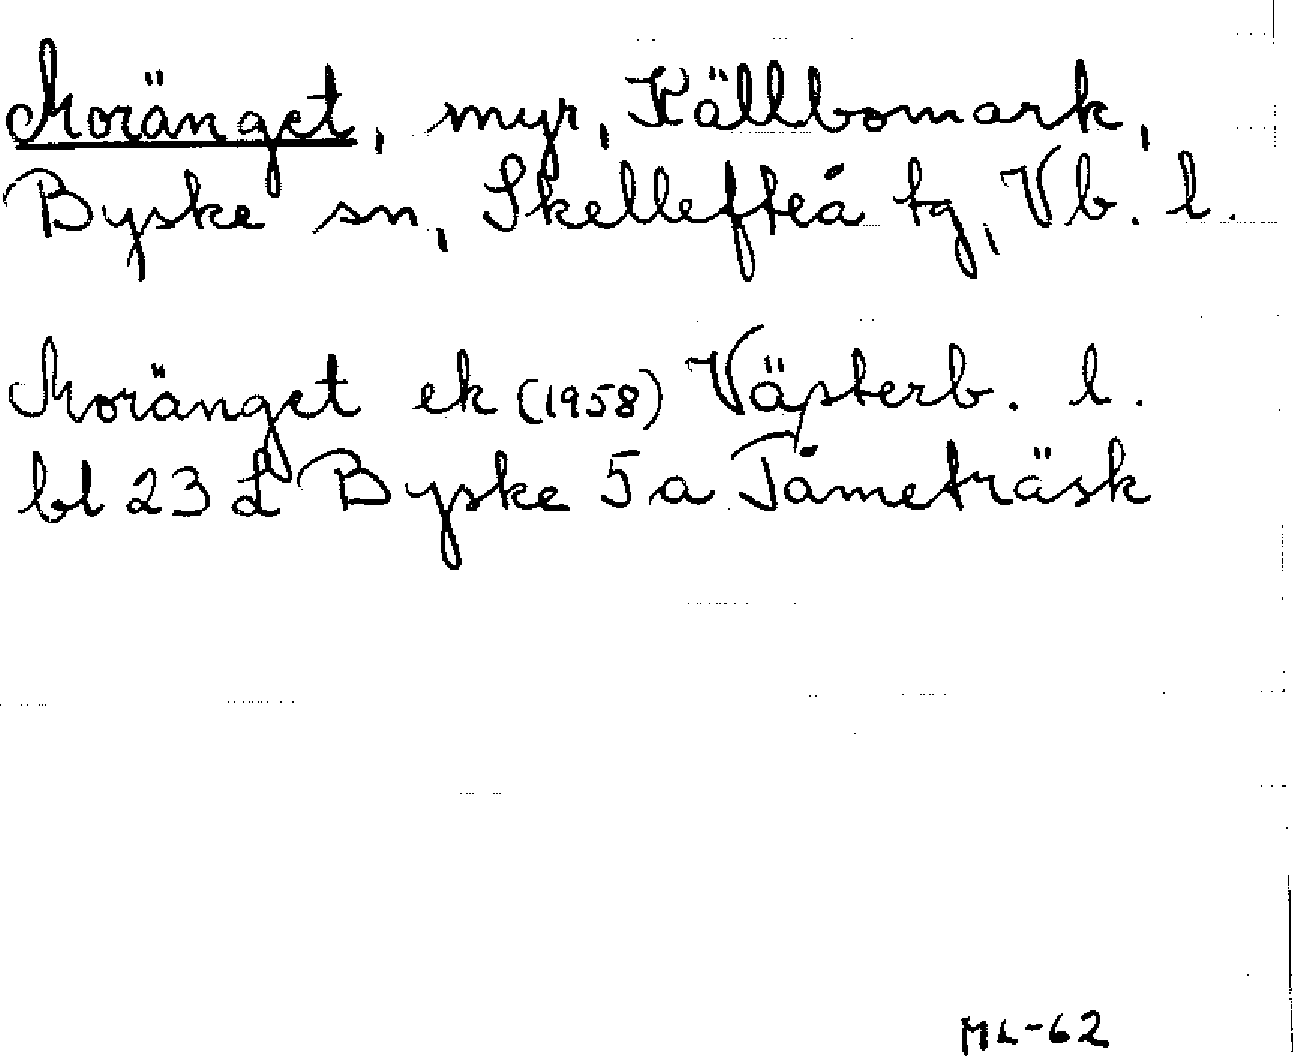 Moränget, myr, Källbomark,
Byske sn, Skellefteå tg, Vb. l.
Moränget ek (1958) Västerb. l.
bl 23 L Byske 5 a Tåmeträsk
ML-62